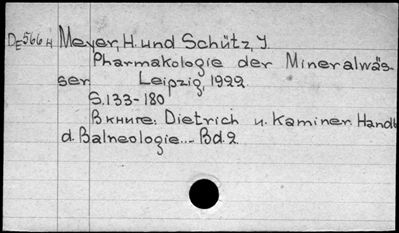 DE566H Meyer, H. und Schütz, J.
Pharmakologie der Mineralwäs-
ser Leipzig, 1922
S.133-180
В книге: Dietrich u. Kaminer. Handb
d. Balneologie... Bd.2.